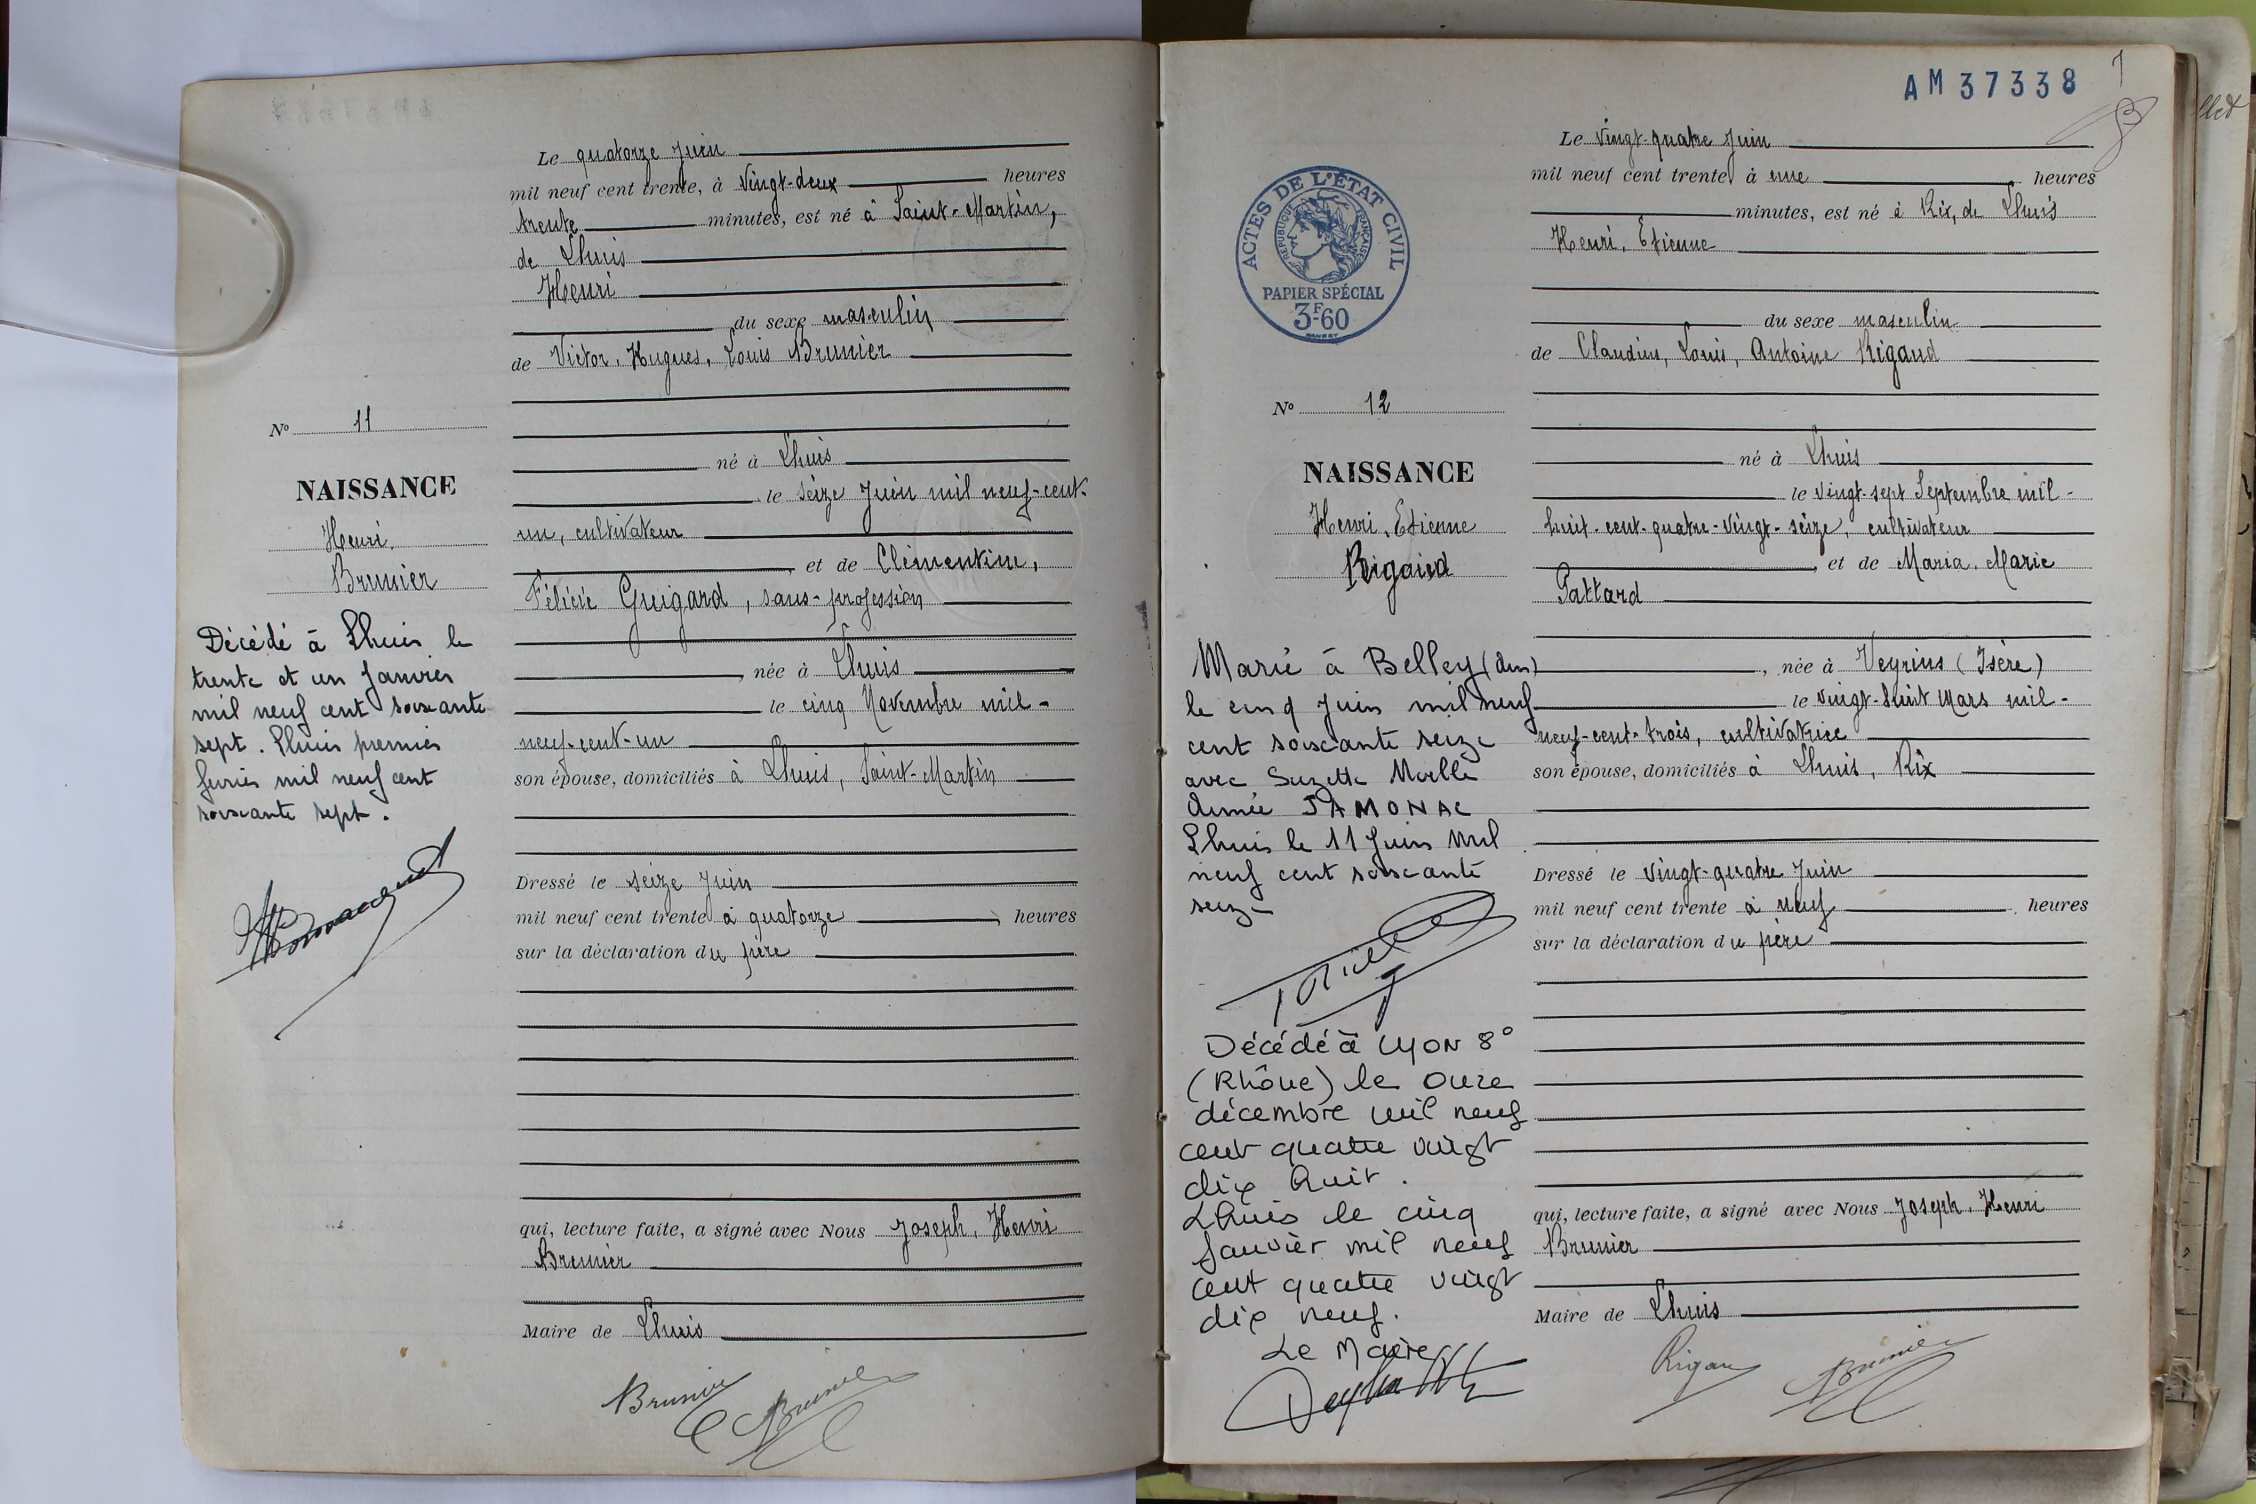 Le quatorze Juin
mil neuf cent trente, à vingt-deux heures
trente minutes, est né à Saint-Martin,
de Lhuis
Henri
du sexe masculin
de Victor, Hugues, Louis Brunier
né à Lhuis
le seize Juin mil neuf-cent-
un, cultivateur
, et de Clémentine,
Félicie Guigard, sans-profession
, née à Lhuis
le cinq Novembre mil-
neuf-cent-un
son épouse, domiciliés à Lhuis, Saint-Martin
Dressé le seize Juin
mil neuf cent trente à quatorze heures
sur la déclaration du père
qui, lecture faite, a signé avec Nous Joseph, Henri
Brunier
Maire de Lhuis
Brunier Brunier
No 11
NAISSANCE
Henri,
Brunier
Décédé à Lhuis le
trente et un Janvier
mil neuf cent soixante
sept. Lhuis premier
fevrier mil neuf cent
soixante sept.
AM 37338
7
Le vingt-quatre Juin
mil neuf cent trente, à une heures
minutes, est né à Rix, de Lhuis
Henri, Etienne
du sexe masculin
de Claudius, Louis, Antoine Rigaud
né à Lhuis
le vingt-sept Septembre mil-
huit-cent-quatre-vingt-seize, cultivateur
, et de Maria, Marie
Pattard
, née à Veyrins (Isère)
le vingt-huit Mars mil-
neuf-cent-trois, cultivatrice
son épouse, domiciliés à Lhuis, Rix
Dressé le vingt-quatre Juin
mil neuf cent trente à neuf heures
sur la déclaration du père
qui, lecture faite, a signé avec Nous Joseph, Henri
Brunier
Maire de Lhuis
Rigaud Brunier
ACTES DE L'ÉTAT CIVIL
RÉPUBLIQUE FRANÇAISE
PAPIER SPÉCIAL
3F60
No 12
NAISSANCE
Henri, Etienne
Rigaud
Marié à Belley (Ain)
le cinq Juin mil neuf
cent soixante seize
avec Suzette
Aimée JAMONAC
Lhuis le 11 Juin mil
neuf cent soixante
seize
Décédé à LYON 8°
(Rhône) le onze
décembre mil neuf
cent quatre vingt
dix huit.
Lhuis le cinq
Janvier mil neuf
cent quatre vingt
dix neuf.
Le Maire